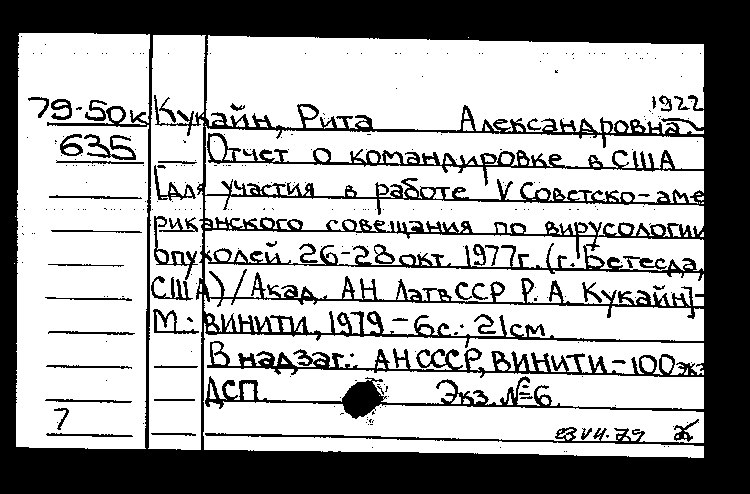 1922
79-50к Кукайн, Рита Александровна
635 Отчет о командировке в США
[для участия в работе V Советско-аме
риканского совещания по вирусологии
опухолей. 26-28 окт. 1977г. (г. Бетесда,
США) / Акад. АН ЛатвССР Р. А. Кукайн]-
М.: ВИНИТИ, 1979.- 6с.; 21см.
В надзаг.: АН СССР, ВИНИТИ.- 100 экз
ДСП. Экз. №6.
7
23 VII.79